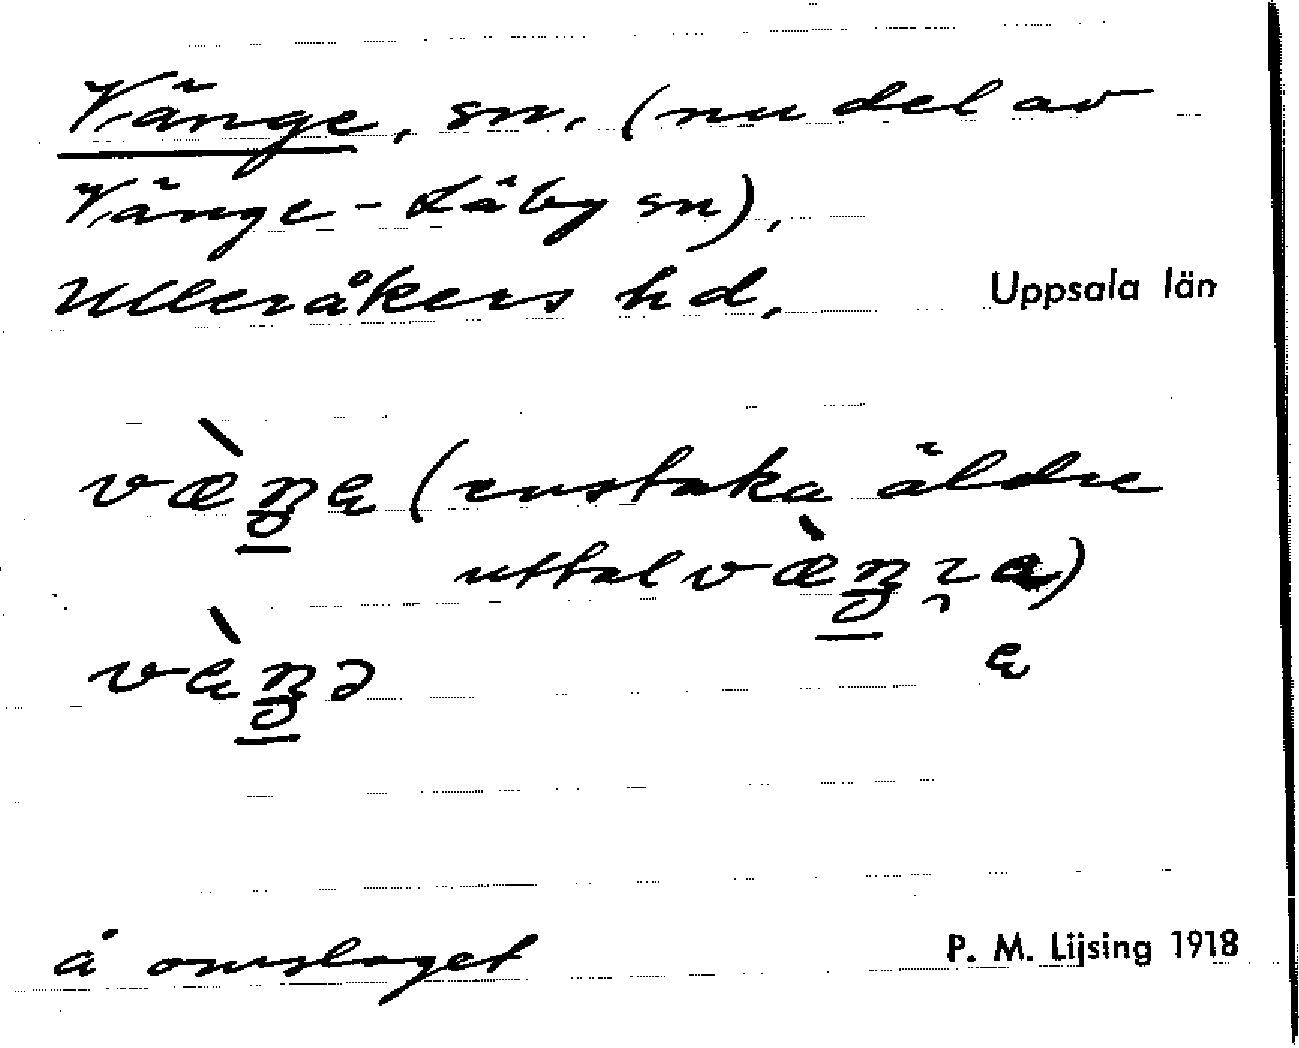 Vänge, sn. (nu del av
Vänge-Läby sn),
Ulleråkers hd,
Uppsala län
(enstaka äldre
uttal
å omslaget
P. M. Lijsing 1918